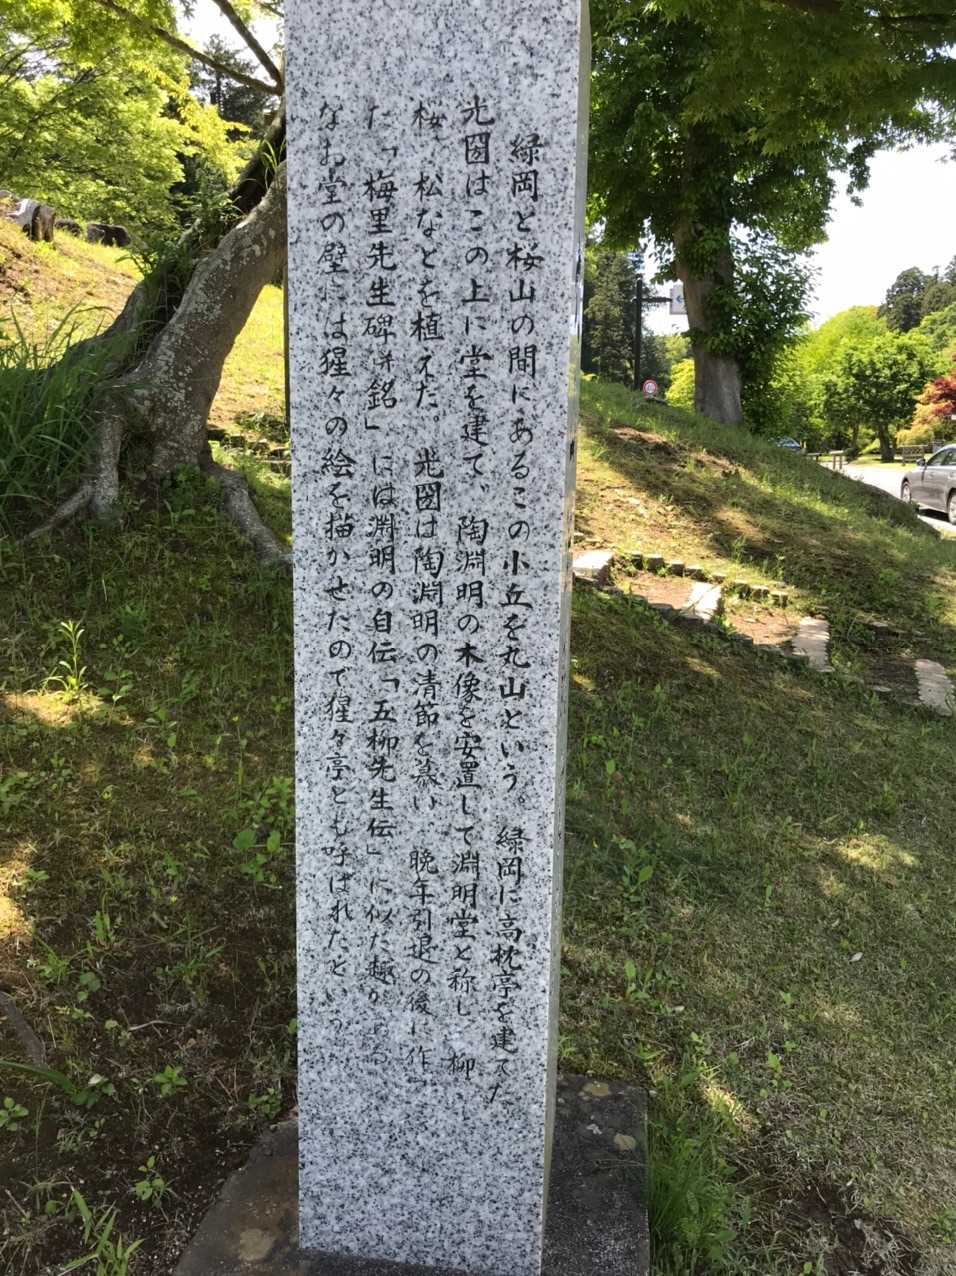 緑岡と桜山の間にあるこの小丘を丸山という。緑岡に高枕亭を建てた
光圀はこの上に堂を建て、陶淵明の木像を安置して淵明堂と称し、柳
桜、松などを植えた。光圀は陶淵明の清節を慕い、晩年引退の後に作っ
た「梅里先生碑并銘」には淵明の自伝「五柳先生伝」に似た趣がある。
なお堂の壁には猩々の絵を描かせたので猩々亭とも呼ばれたという